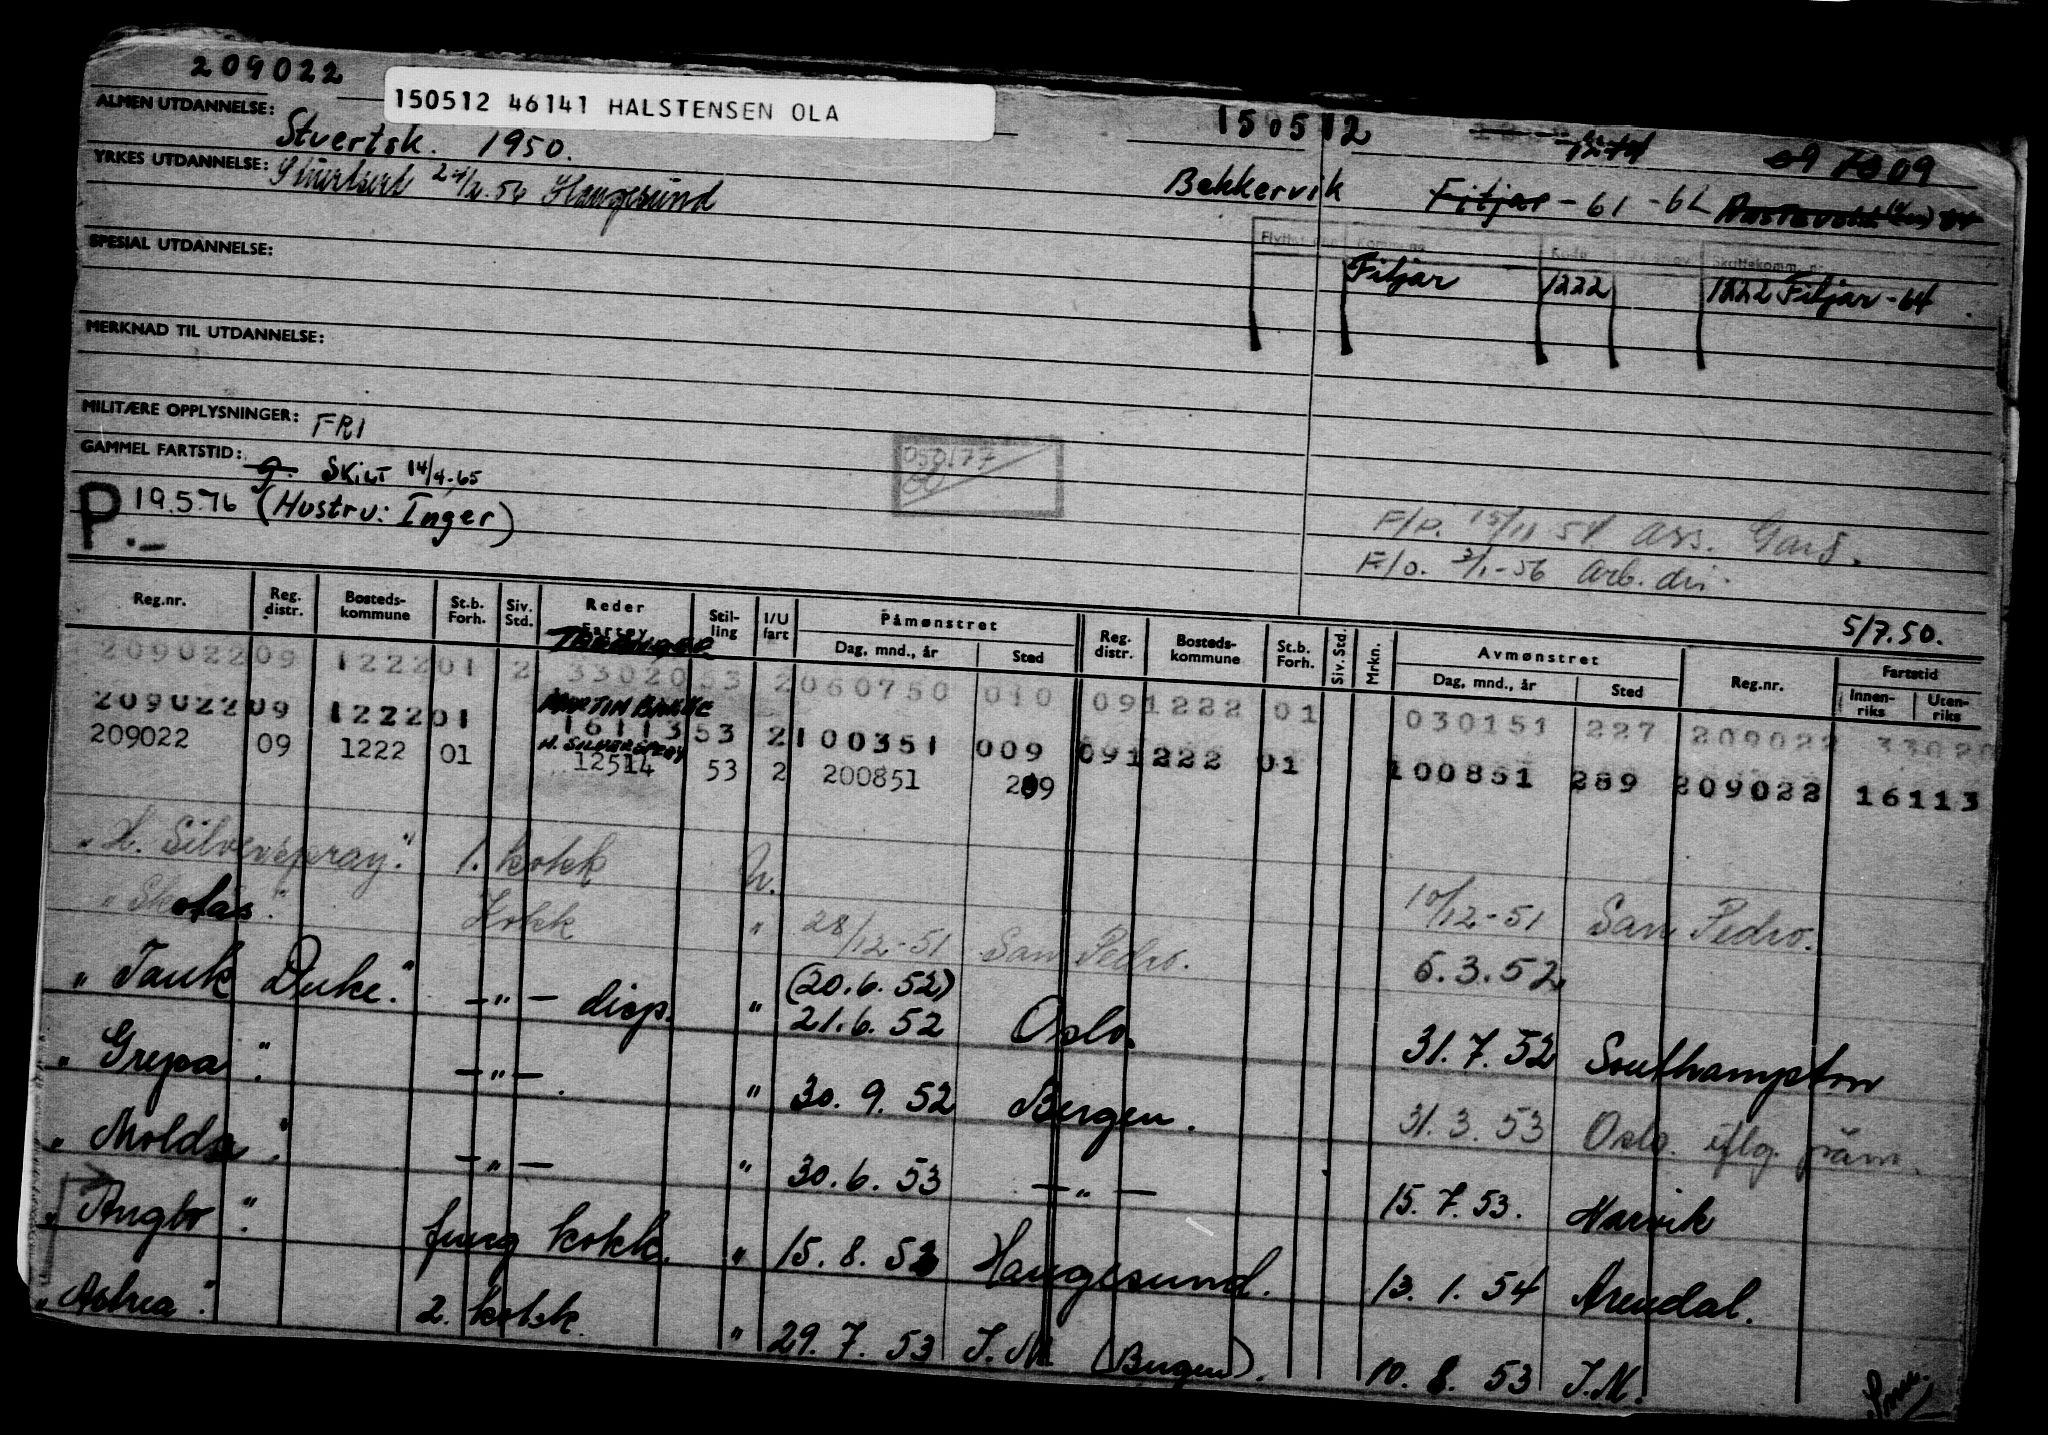 209022
150512 46141 HALSTENSEN OLA
150512
09 7809
ALMEN UTDANNELSE: Stvertsk. 1950.
YRKES UTDANNELSE: Haugesund
Bekkervik Fitjar - 61 - 62
SPESIAL UTDANNELSE:
Kommune Skattekomm. nr.
Fitjar 1222 1222 Fitjar - 64
MERKNAD TIL UTDANNELSE:
MILITÆRE OPPLYSNINGER: FRI
GAMMEL FARTSTID: g. SKILT 14/4-65
P.- 19.5.76 (Hustru: Inger)
050177
F/p. 15/11 54 ass. Gard.
F/o. 3/1-56 arb. dir.
5/7.50.
Reg.nr. Reg. distr. Bosteds-kommune St.b. Forh. Siv. Std. Reder Fartøy Stil-ling I/U fart Påmønstret Dag, mnd., år Sted Reg. distr. Bosteds-kommune St.b. Forh. Siv. Std. Mrkn. Avmønstret Dag, mnd., år Sted Reg.nr. Fartstid Innen-riks Uten-riks
209022 09 1222 01 2 33020 53 2 060750 010 09 1222 01 030151 227 209022 33020
MARTIN BAKKE
209022 09 1222 01 16113 53 2 100351 009 09 1222 01 100851 289 209022 16113
H. SILVERSPRAY
209022 09 1222 01 12514 53 2 200851 289
"H. Silverspray." 1. kokk U. 10/12-51 San Pedro.
"Skotaas". Kokk " 28/12-51 San Pedro. 6.3.52
"Tank Duke." -"- disp. " (20.6.52) 21.6.52 Oslo. 31.7.52 Southampton
"Grepa". -"-. " 30.9.52 Bergen. 31.3.53 Oslo. iflg.
"Molda". -"- " 30.6.53 -"- 15.7.53. Narvik
"Anglo". fung kokk. " 15.8.53 Haugesund. 13.1.54 Arendal.
"Astrea". 2. kokk. " 29.7.53 I.M. (Bergen). 10.8.53 I.M.